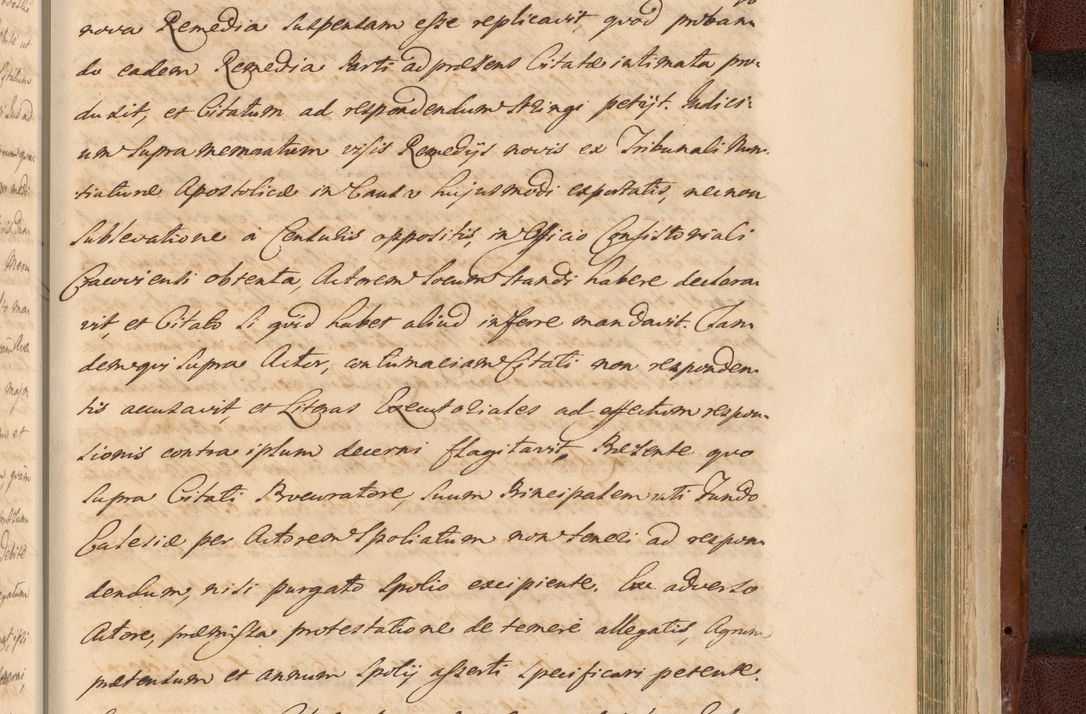 nova Remedia suspensam esse replicavit, quod proban:
do eadem Remedia Parti ad præsens Citatæ intimata pro:
duxit, et Citatum ad respondendum stringi petijt. Judici:
um supra memoratum visis Remedijs novis ex Tribunali Nun:
tiaturæ Apostolicæ in Causa hujusmodi exportatis, necnon
sublevatione à Censuris oppositis, in Officio Consistoriali
Cracoviensi obtenta, Actorem locum standi habere declara:
vit, et Citato si quid habet aliud inferre mandavit. Tan:
dem qui supra Actor, contumaciam Citati non responden:
tis accusavit, et Literas Executoriales ad effectum respon:
sionis contra ipsum decerni flagitavit. Præsente quo
supra Citati Procuratore, suum Principalem uti Fundo
Ecclesiæ per Actorem spoliatum non teneri ad respon:
dendum, nisi purgato spolio excipiente. Ex adverso
Actore, præmissa protestatione de temere allegatis, Agrum
prætensum et annum spolij asserti specificari petente.